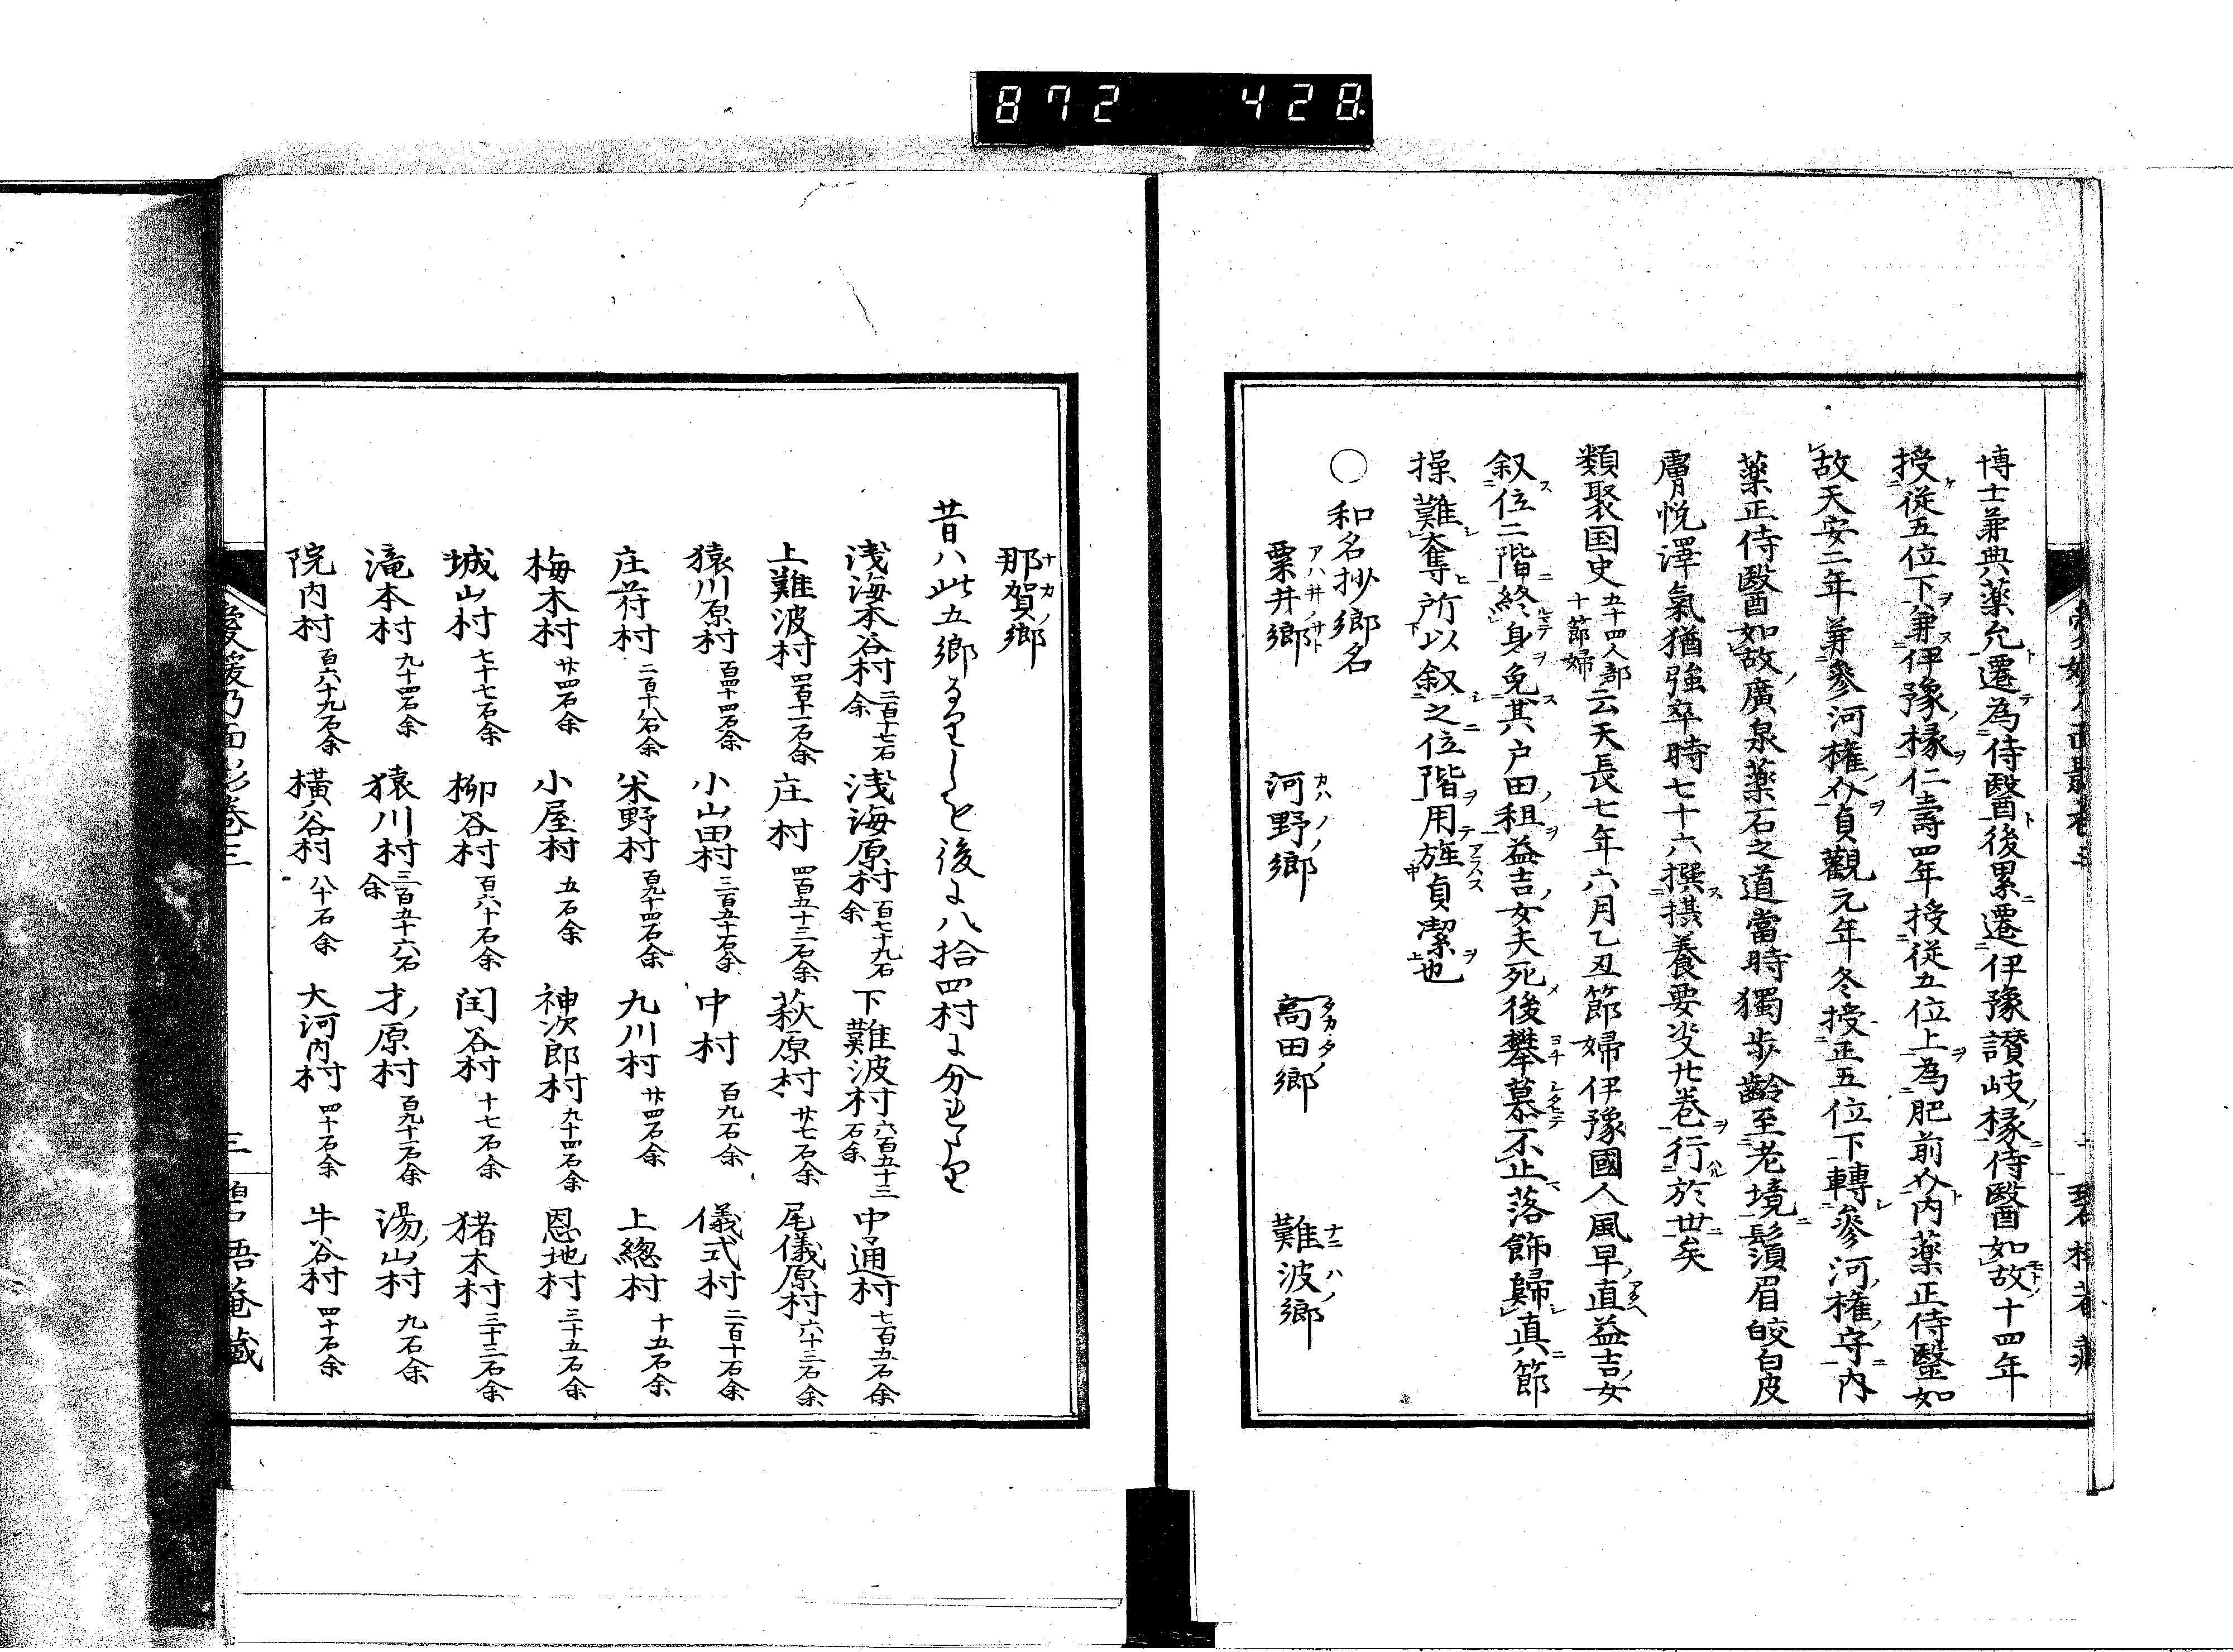 872 428
博士兼典藥允遷為侍醫後累遷伊豫讃岐掾侍醫如故十四年
授從五位下兼伊豫掾仁壽四年授従五位上為肥前介内薬正侍醫如
故天安二年兼参河權介貞觀元年冬授正五位下轉參河權守内
薬正侍醫如故廣泉薬石之道當時獨步齡至老境鬚眉皎白皮
膚悦澤氣猶強卒時七十六撰摂養要决廿巻行於世矣
類聚国史五十四人部十節婦云天長七年六月乙丑節婦伊豫國人風早直益吉女
叙位二階終身免其戸田租益吉女夫死後攀慕不止落飾歸真節
操難奪所以叙之位階用旌貞潔也
○和名抄郷名
粟井郷 河野郷 高田郷 難波郷
アハ井ノサト カハノノ タカタノ ナニハノ
那賀郷
ナカノ
昔ハ此五郷なりしを後に八拾四村に分れたり
浅海本谷村二百十七石余 浅海原村百七十九石余 下難波村六百五十三石余 中通村七百五石余
上難波村四百十一石余 庄村四百五十三石余 萩原村廿七石余 尾儀原村六十三石余
猿川原村百四十四石余 小山田村三百五十石余 中村百九石余 儀式村二百十石余
庄苻村二百十八石余 米野村百九十四石余 九川村廿四石余 上總村十五石余
梅木村廿四石余 小屋村五石余 神次郎村九十四石余 恩地村三十五石余
城山村七十七石余 柳谷村百六十石余 閏谷村十七石余 猪木村三十三石余
滝本村九十四石余 猿川村三百五十六石余 才原村百九十一石余 湯山村九石余
院内村百六十九石余 横谷村八十石余 大河内村四十石余 牛谷村四十石余
愛媛乃面影巻三 三 碧梧菴藏